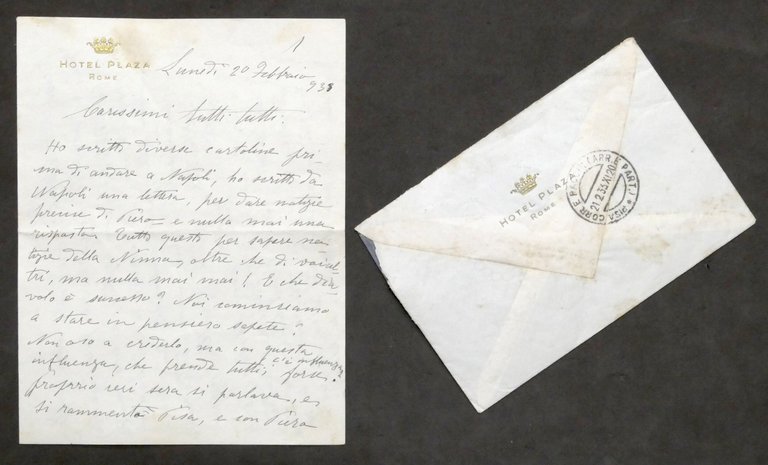 1
HOTEL PLAZA
ROME
Lunedì 20 Febbraio
933
Carissimi tutti tutti.
Ho scritto diverse cartoline pri-
ma di andare a Napoli, ho scritto da
Napoli una lettera, per dare notizie
di Piero e nulla mai una
risposta. Tutto questo per sapere no-
tizie della Ninna, oltre che di voial-
tri, ma nulla mai mai! E che dia-
volo è successo? Noi cominciamo
a stare in pensiero sapete!
Non oso a crederlo, ma con questa
influenza, che prende tutti, forse
c'è influenza?
proprio ieri sera si parlava, e
si rammentò Pisa, e con Piero
HOTEL PLAZA
ROME
PISA CORR. E PACCHI ARR. E PART.
21.2.33.XI 20